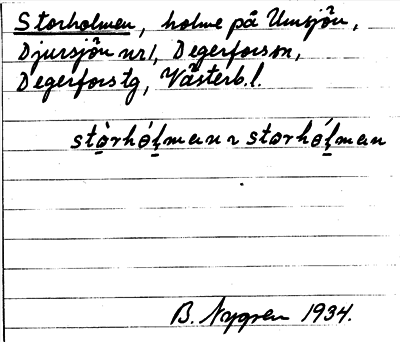 Storholmen, holme på Umsjön,
Djursjön nr 1, Degerforssn,
Degerfors tg, Västerb.l.
stòrhólman ~ storhólman
B. Nygren 1934.